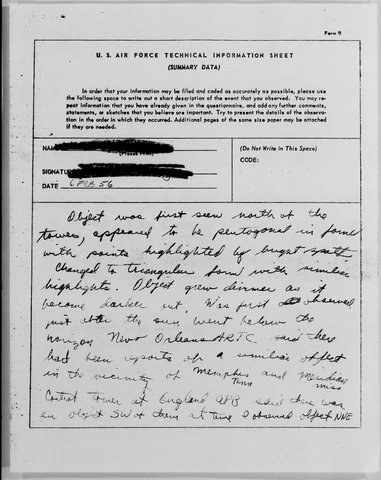 Form B
U. S. AIR FORCE TECHNICAL INFORMATION SHEET
(SUMMARY DATA)
In order that your information may be filed and coded as accurately as possible, please use
the following space to write out a short description of the event that you observed. You may re-
peat information that you have already given in the questionnaire, and add any further comments,
statements, or sketches that you believe are important. Try to present the details of the observa-
tion in the order in which they occurred. Additional pages of the same size paper may be attached
if they are needed.
NAME
(Please Print)
SIGNATURE
DATE 6 FEB 56
(Do Not Write in This Space)
CODE:
Object was first seen north of the
tower, appeared to be pentagonal in form
with points highlighted by bright spots.
Changed to triangular form with similar
highlights. Object grew dimmer as it
became darker out. Was first observed
just after the sun went below the
horizon New Orleans ARTC said there
had been reports of a similar object
in the vicinity of Memphis Tenn and Meridian Miss
Control tower at England AFB said there was
an object SW of them at time I observed object NNE